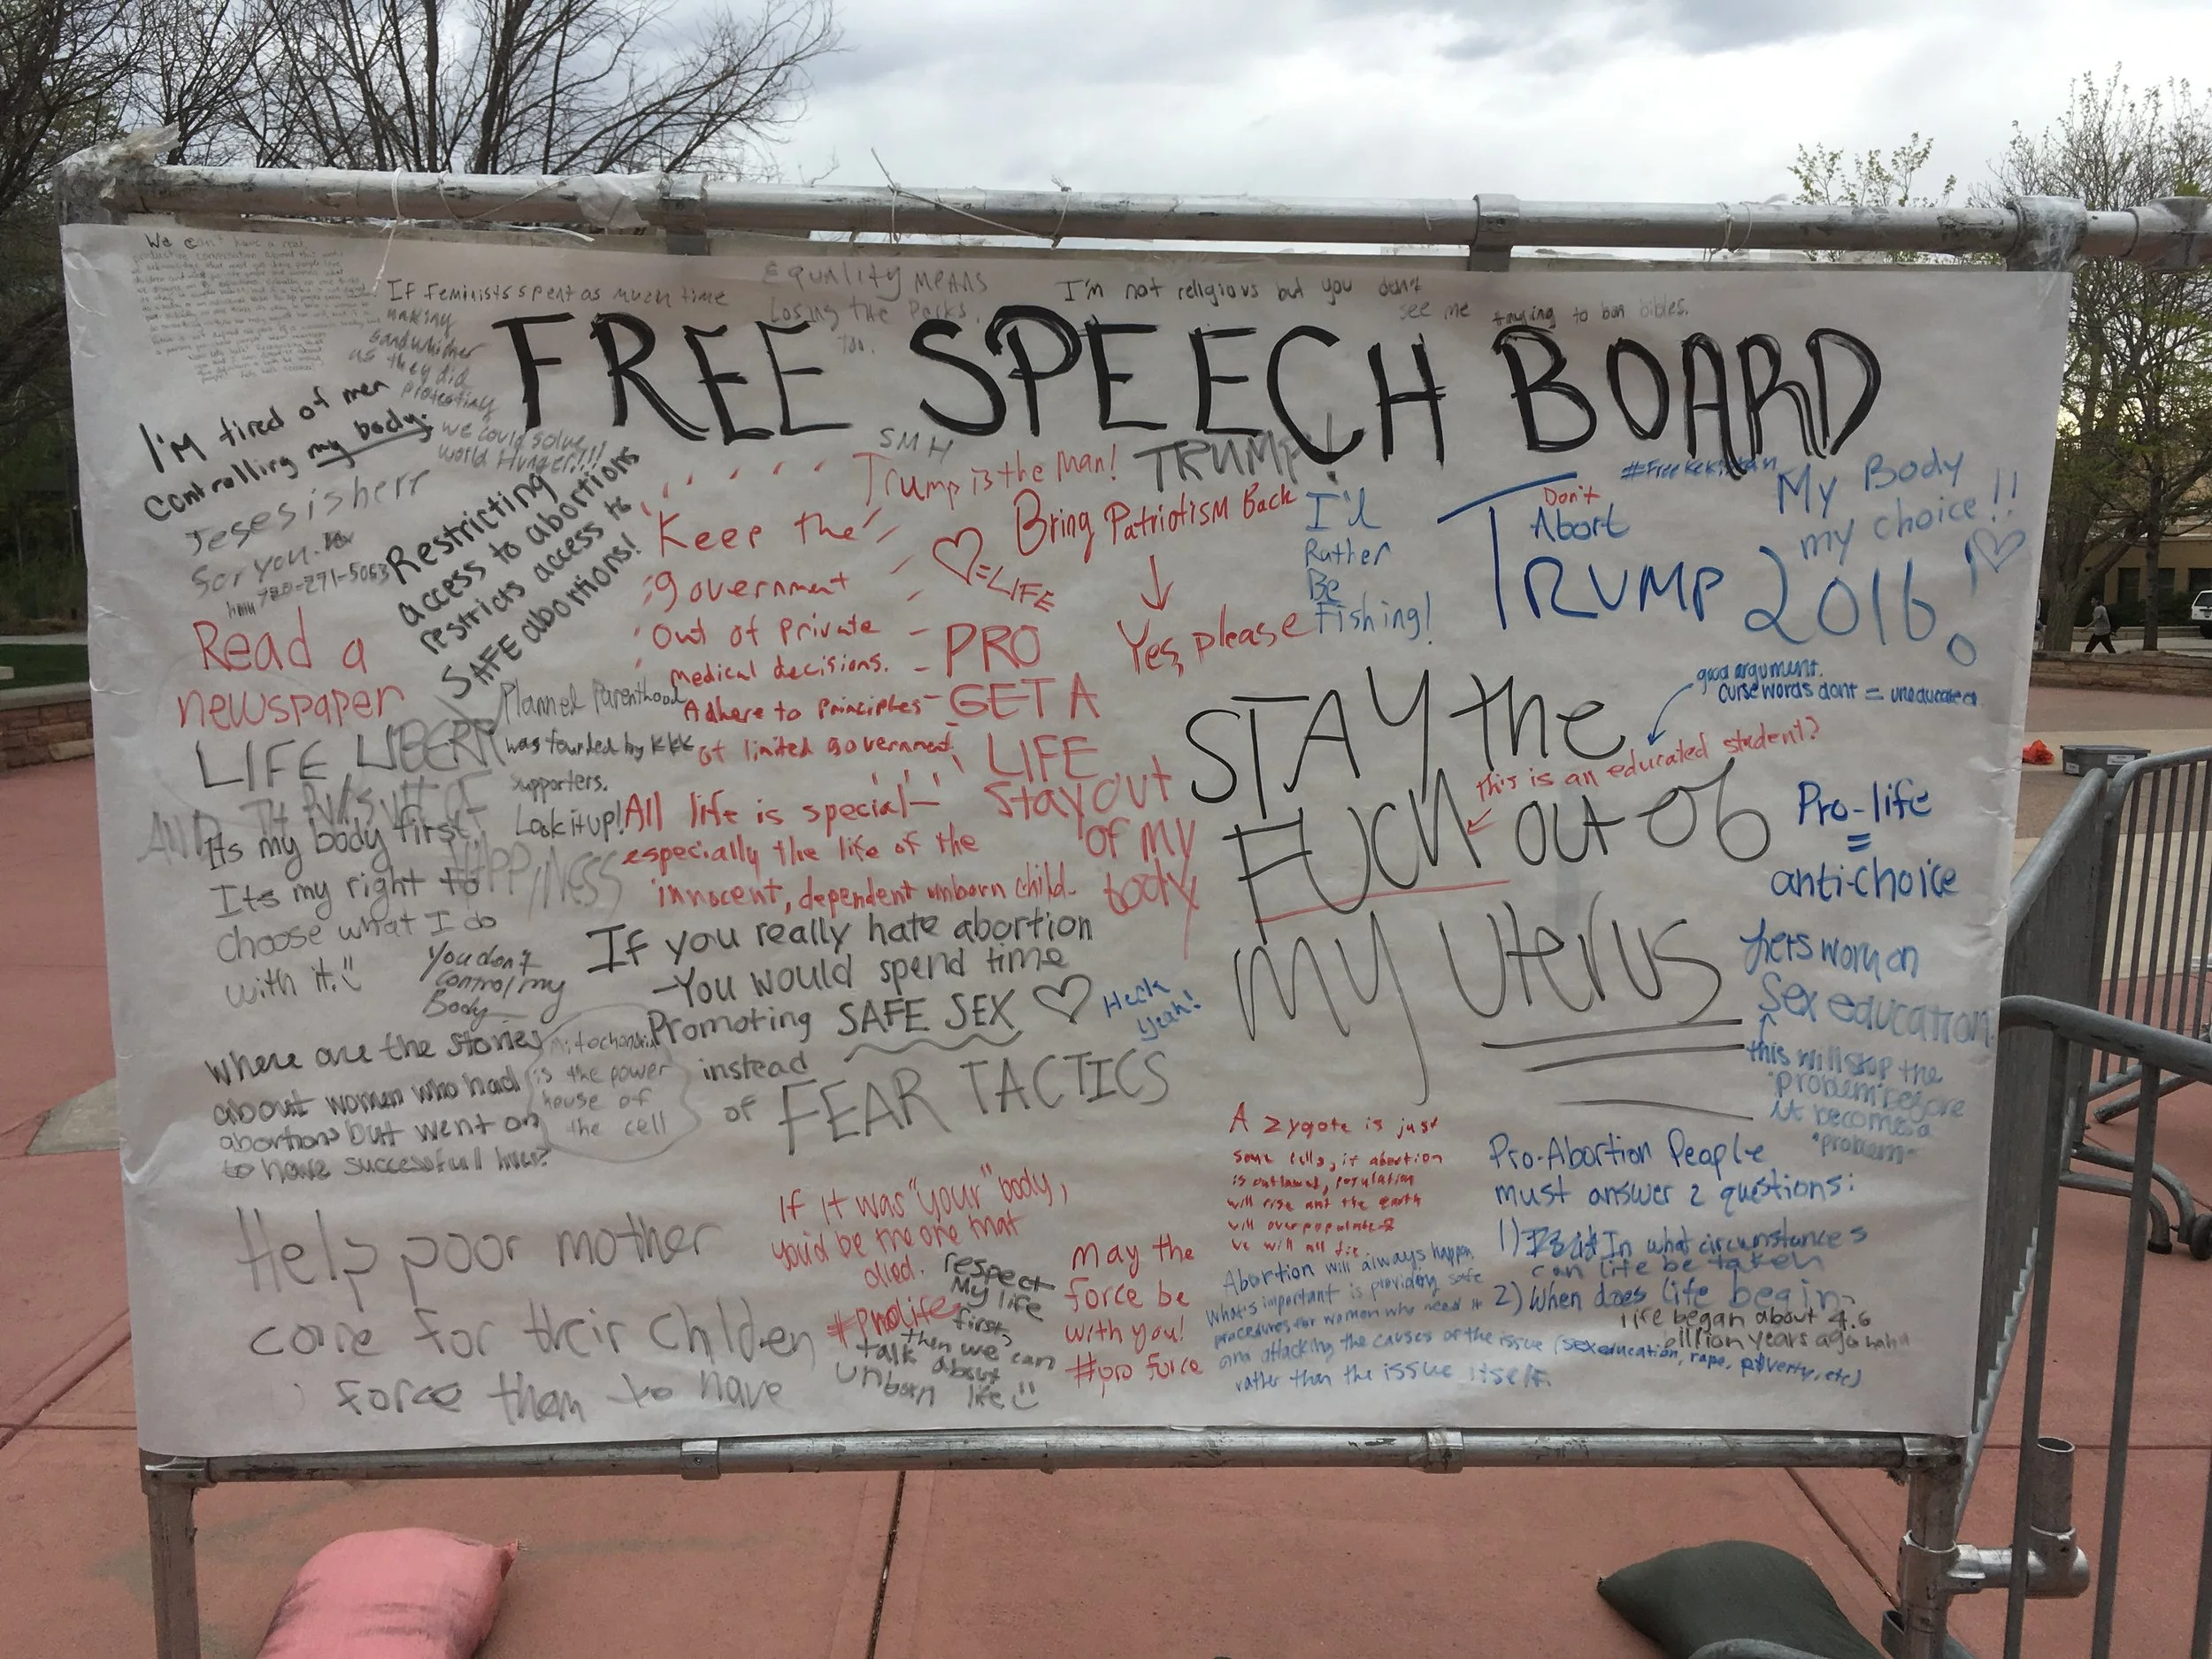 We can't have a real,
productive conversation about this until
If feminists spent as much time
making
sandwhiches
as they did
protesting
we could solve
world Hunger!!!
Equality means
Losing the Perks,
too.
I'm not religious but you don't
see me trying to ban bibles.
FREE SPEECH BOARD
I'm tired of men
controlling my body.
Jeses is herr
for you.
Restricting
access to abortions
restricts access to
SAFE abortions!
Read a
newspaper
LIFE LIBERTY
AND THE PURSUIT OF
HAPPINESS
Planned Parenthood
was founded by KKK
supporters.
Look it up!
Its my body first,
Its my right to
choose what I do
with it. "
You don't
control my
Body
SMH
Trump is the man!
TRUMP!
Keep the
government
out of private
medical decisions.
Adhere to principles
of limited government
Bring Patriotism Back
Yes, please
♡=LIFE
PRO
GET A
LIFE
Stay out
of my
body
All life is special—
especially the life of the
innocent, dependent unborn child.
I'd
Rather
Be
Fishing!
#FreeKekistan
Don't
Abort
TRUMP 2016
My Body
my choice!!
♡
STAY the
FUCK out of
my uterus
good argument.
curse words dont = uneducated
this is an educated student?
Pro-life
=
anti-choice
Lets work on
Sex education
this will stop the
"problem" before
it becomes a
"problem"
If you really hate abortion
-You would spend time
Promoting SAFE SEX ♡
instead
of FEAR TACTICS
Heck
yeah!
Where are the stories
about women who had
abortions but went on
to have successfull lives?
Mitochondria
is the power
house of
the cell
Help poor mother
care for their children
force them to have
If it was "your" body,
you'd be the one that
died.
#Prolife
respect
My life
first,
then we can
talk about
unborn life
may the
force be
with you!
#pro force
A zygote is just
some cells, if abortion
is outlawed, population
will rise and the earth
will overpopulate &
we will all die
Abortion will always happen,
What's important is providing safe
procedures for women who need it
and attacking the causes of the issue (sex education, rape, poverty, etc)
rather than the issue itself.
Pro-Abortion People
must answer 2 questions:
1) In what circumstances
can life be taken
2) When does life begin
life began about 4.6
billion years ago haha